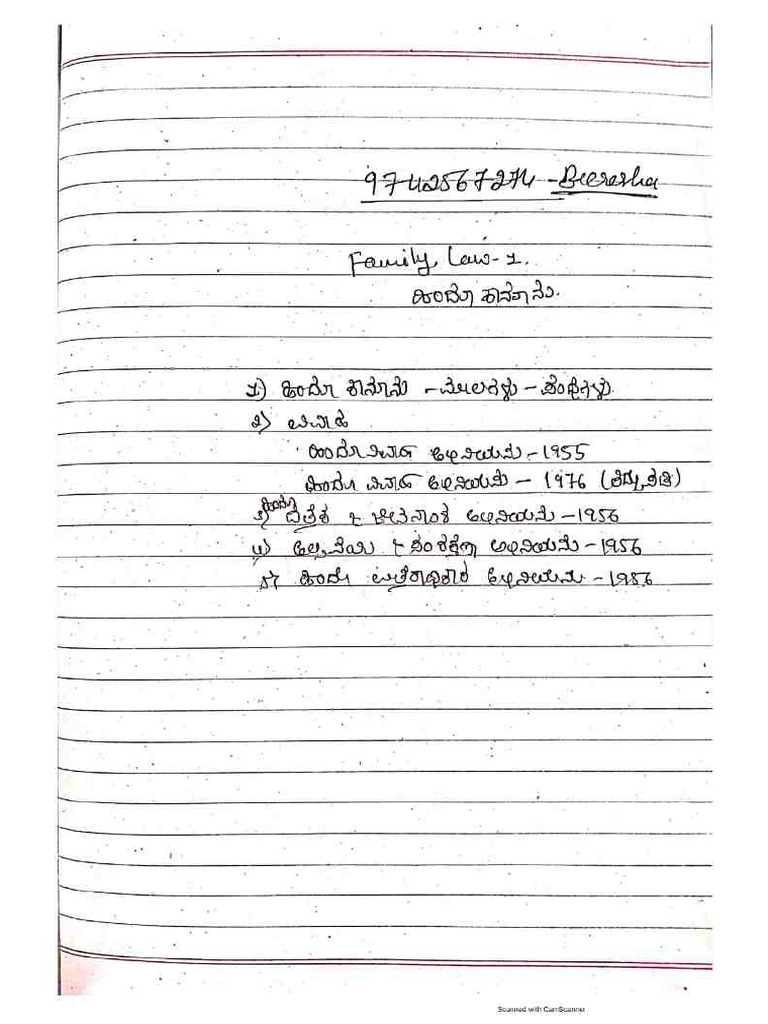 9742567274 - Beeresha
Family Law - 1.
ಹಿಂದೂ ಕಾನೂನು.
1) ಹಿಂದೂ ಕಾನೂನು - ಮೂಲಗಳು - ಪಂಥಗಳು
2) ವಿವಾಹ
ಹಿಂದೂ ವಿವಾಹ ಅಧಿನಿಯಮ - 1955
ಹಿಂದೂ ವಿವಾಹ ಅಧಿನಿಯಮ - 1976 (ತಿದ್ದುಪಡಿ)
ಹಿಂದೂ
3) ದತ್ತಕ & ಜೀವನಾಂಶ ಅಧಿನಿಯಮ - 1956
4) ಅಲ್ಪವಯಿ & ಸಂರಕ್ಷಣಾ ಅಧಿನಿಯಮ - 1956
5) ಹಿಂದೂ ಉತ್ತರಾಧಿಕಾರ ಅಧಿನಿಯಮ - 1956
Scanned with CamScanner